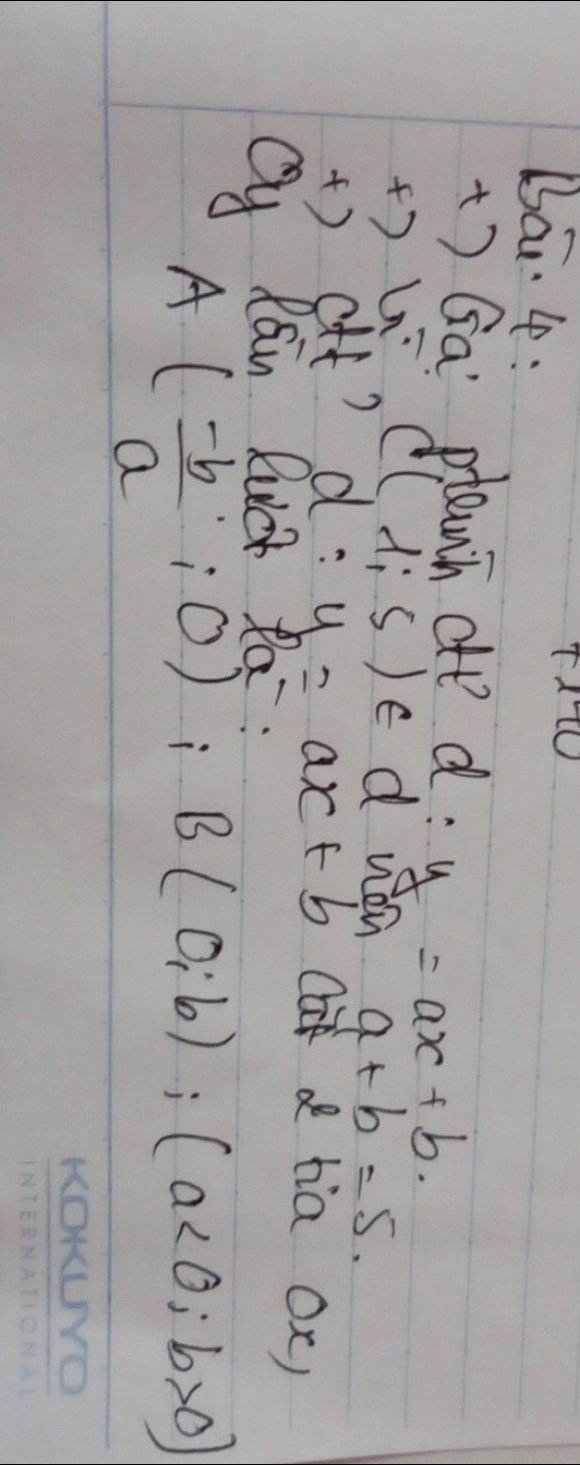 + 140
Bài 4:
+) Gọi ptđt d: y = ax + b.
+) Vì C(1; 5) ∈ d nên a + b = 5.
+) đt d: y = ax + b cắt 2 tia Ox,
Oy lần lượt là:
A (-b/a ; 0) ; B ( 0; b) ; ( a < 0; b > 0)
KOKUYO
INTERNATIONAL